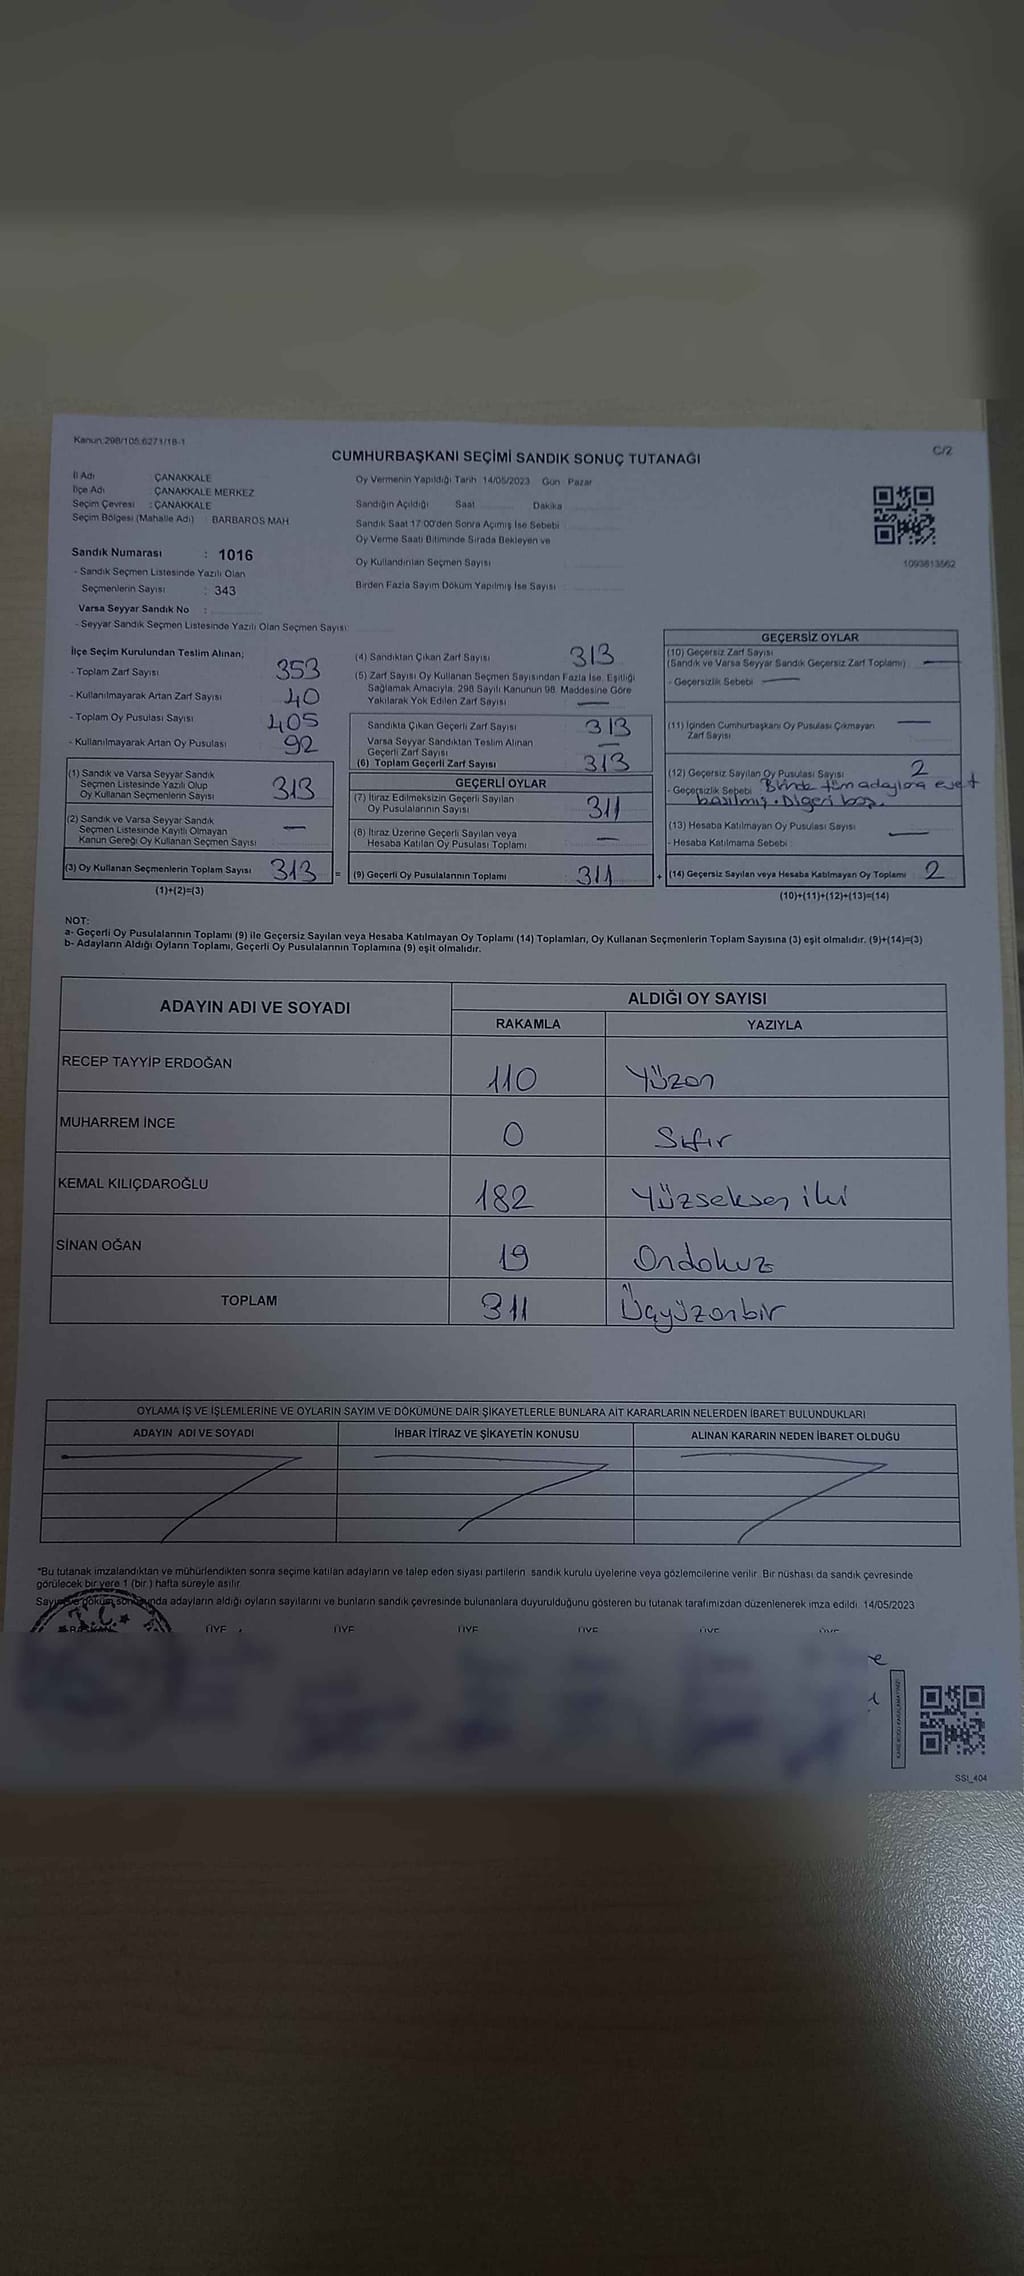 Kanun:298/105:6271/18-1
C/2
CUMHURBAŞKANI SEÇİMİ SANDIK SONUÇ TUTANAĞI
İl Adı : ÇANAKKALE
İlçe Adı : ÇANAKKALE MERKEZ
Seçim Çevresi : ÇANAKKALE
Seçim Bölgesi (Mahalle Adı) : BARBAROS MAH
Sandık Numarası : 1016
- Sandık Seçmen Listesinde Yazılı Olan
Seçmenlerin Sayısı : 343
Varsa Seyyar Sandık No :
- Seyyar Sandık Seçmen Listesinde Yazılı Olan Seçmen Sayısı:
Oy Vermenin Yapıldığı Tarih 14/05/2023 Gün Pazar
Sandığın Açıldığı Saat Dakika
Sandık Saat 17:00'den Sonra Açımış İse Sebebi
Oy Verme Saati Bitiminde Sırada Bekleyen ve
Oy Kullandırılan Seçmen Sayısı
Birden Fazla Sayım Döküm Yapılmış İse Sayısı
1093813562
İlçe Seçim Kurulundan Teslim Alınan;
- Toplam Zarf Sayısı 353
- Kullanılmayarak Artan Zarf Sayısı 40
- Toplam Oy Pusulası Sayısı 405
- Kullanılmayarak Artan Oy Pusulası 92
(1) Sandık ve Varsa Seyyar Sandık
Seçmen Listesinde Yazılı Olup
Oy Kullanan Seçmenlerin Sayısı 313
(2) Sandık ve Varsa Seyyar Sandık
Seçmen Listesinde Kayıtlı Olmayan
Kanun Gereği Oy Kullanan Seçmen Sayısı —
(3) Oy Kullanan Seçmenlerin Toplam Sayısı 313 =
(1)+(2)=(3)
(4) Sandıktan Çıkan Zarf Sayısı 313
(5) Zarf Sayısı Oy Kullanan Seçmen Sayısından Fazla İse, Eşitliği
Sağlamak Amacıyla, 298 Sayılı Kanunun 98. Maddesine Göre
Yakılarak Yok Edilen Zarf Sayısı —
Sandıkta Çıkan Geçerli Zarf Sayısı : 313
Varsa Seyyar Sandıktan Teslim Alınan
Geçerli Zarf Sayısı —
(6) Toplam Geçerli Zarf Sayısı : 313
GEÇERLİ OYLAR
(7) İtiraz Edilmeksizin Geçerli Sayılan
Oy Pusulalarının Sayısı : 311
(8) İtiraz Üzerine Geçerli Sayılan veya
Hesaba Katılan Oy Pusulası Toplamı : —
(9) Geçerli Oy Pusulalarının Toplamı : 311 +
GEÇERSİZ OYLAR
(10) Geçersiz Zarf Sayısı
(Sandık ve Varsa Seyyar Sandık Geçersiz Zarf Toplamı) —
- Geçersizlik Sebebi —
(11) İçinden Cumhurbaşkanı Oy Pusulası Çıkmayan
Zarf Sayısı —
(12) Geçersiz Sayılan Oy Pusulası Sayısı 2
- Geçersizlik Sebebi Birinde tüm adaylara evet
basılmış. Diğeri boş.
(13) Hesaba Katılmayan Oy Pusulası Sayısı —
- Hesaba Katılmama Sebebi :
(14) Geçersiz Sayılan veya Hesaba Katılmayan Oy Toplamı 2
(10)+(11)+(12)+(13)=(14)
NOT:
a- Geçerli Oy Pusulalarının Toplamı (9) ile Geçersiz Sayılan veya Hesaba Katılmayan Oy Toplamı (14) Toplamları, Oy Kullanan Seçmenlerin Toplam Sayısına (3) eşit olmalıdır. (9)+(14)=(3)
b- Adayların Aldığı Oyların Toplamı, Geçerli Oy Pusulalarının Toplamına (9) eşit olmalıdır.
ADAYIN ADI VE SOYADI
ALDIĞI OY SAYISI
RAKAMLA YAZIYLA
RECEP TAYYİP ERDOĞAN 110 Yüzon
MUHARREM İNCE 0 Sıfır
KEMAL KILIÇDAROĞLU 182 Yüzseksen iki
SİNAN OĞAN 19 Ondokuz
TOPLAM 311 Üçyüzonbir
OYLAMA İŞ VE İŞLEMLERİNE VE OYLARIN SAYIM VE DÖKÜMÜNE DAİR ŞİKAYETLERLE BUNLARA AİT KARARLARIN NELERDEN İBARET BULUNDUKLARI
ADAYIN ADI VE SOYADI İHBAR İTİRAZ VE ŞİKAYETİN KONUSU ALINAN KARARIN NEDEN İBARET OLDUĞU
*Bu tutanak imzalandıktan ve mühürlendikten sonra seçime katılan adayların ve talep eden siyasi partilerin sandık kurulu üyelerine veya gözlemcilerine verilir. Bir nüshası da sandık çevresinde
görülecek bir yere 1 (bir ) hafta süreyle asılır.
Sayım ve döküm sonucunda adayların aldığı oyların sayılarını ve bunların sandık çevresinde bulunanlara duyurulduğunu gösteren bu tutanak tarafımızdan düzenlenerek imza edildi. 14/05/2023
T.C.
BAŞKAN ÜYE ÜYE ÜYE ÜYE ÜYE ÜYE
SSI_404